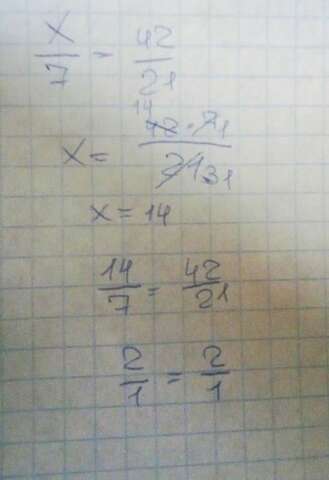 x/7 = 42/21
x = 42 · 7 / 21
14 1 3 1
x = 14
14/7 = 42/21
2/1 = 2/1